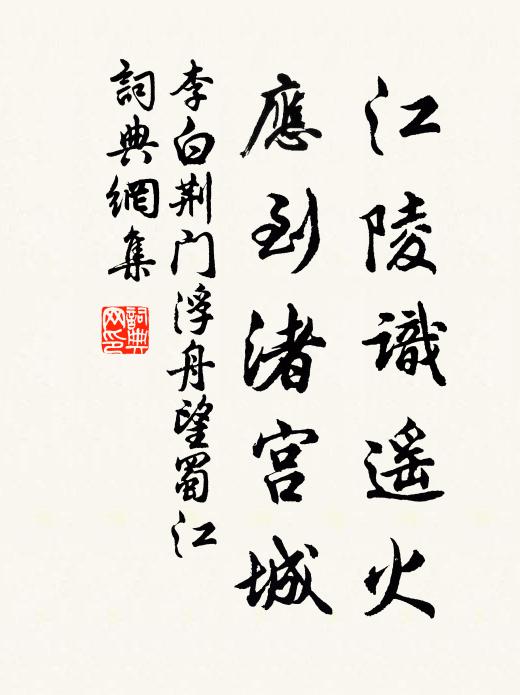 江陵識遥火
應到渚宫城
李白荆门浮舟望蜀江
詞典網集
詞典网印